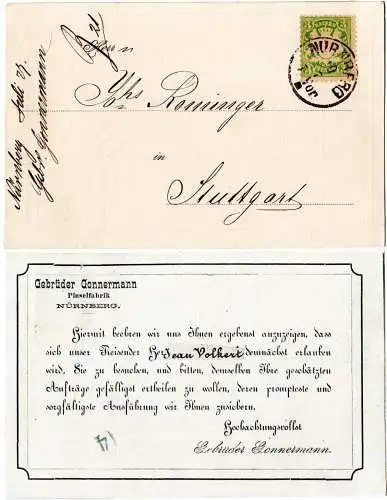 3
NÜRNBERG
Herrn
Joh's Rominger
in
Stuttgart
Nürnberg Juli 
Gebr. Gonnermann
Gebrüder Gonnermann
Pinselfabrik
NÜRNBERG.
Hiermit beehren wir uns Ihnen ergebenst anzuzeigen, dass
sich unser Reisender Hr Jean Volkert demnächst erlauben
wird, Sie zu besuchen, und bitten, demselben Ihre geschätzten
Aufträge gefälligst ertheilen zu wollen, deren prompteste und
sorgfältigste Ausführung wir Ihnen zusichern.
Hochachtungsvollst
Gebrüder Gonnermann.
14